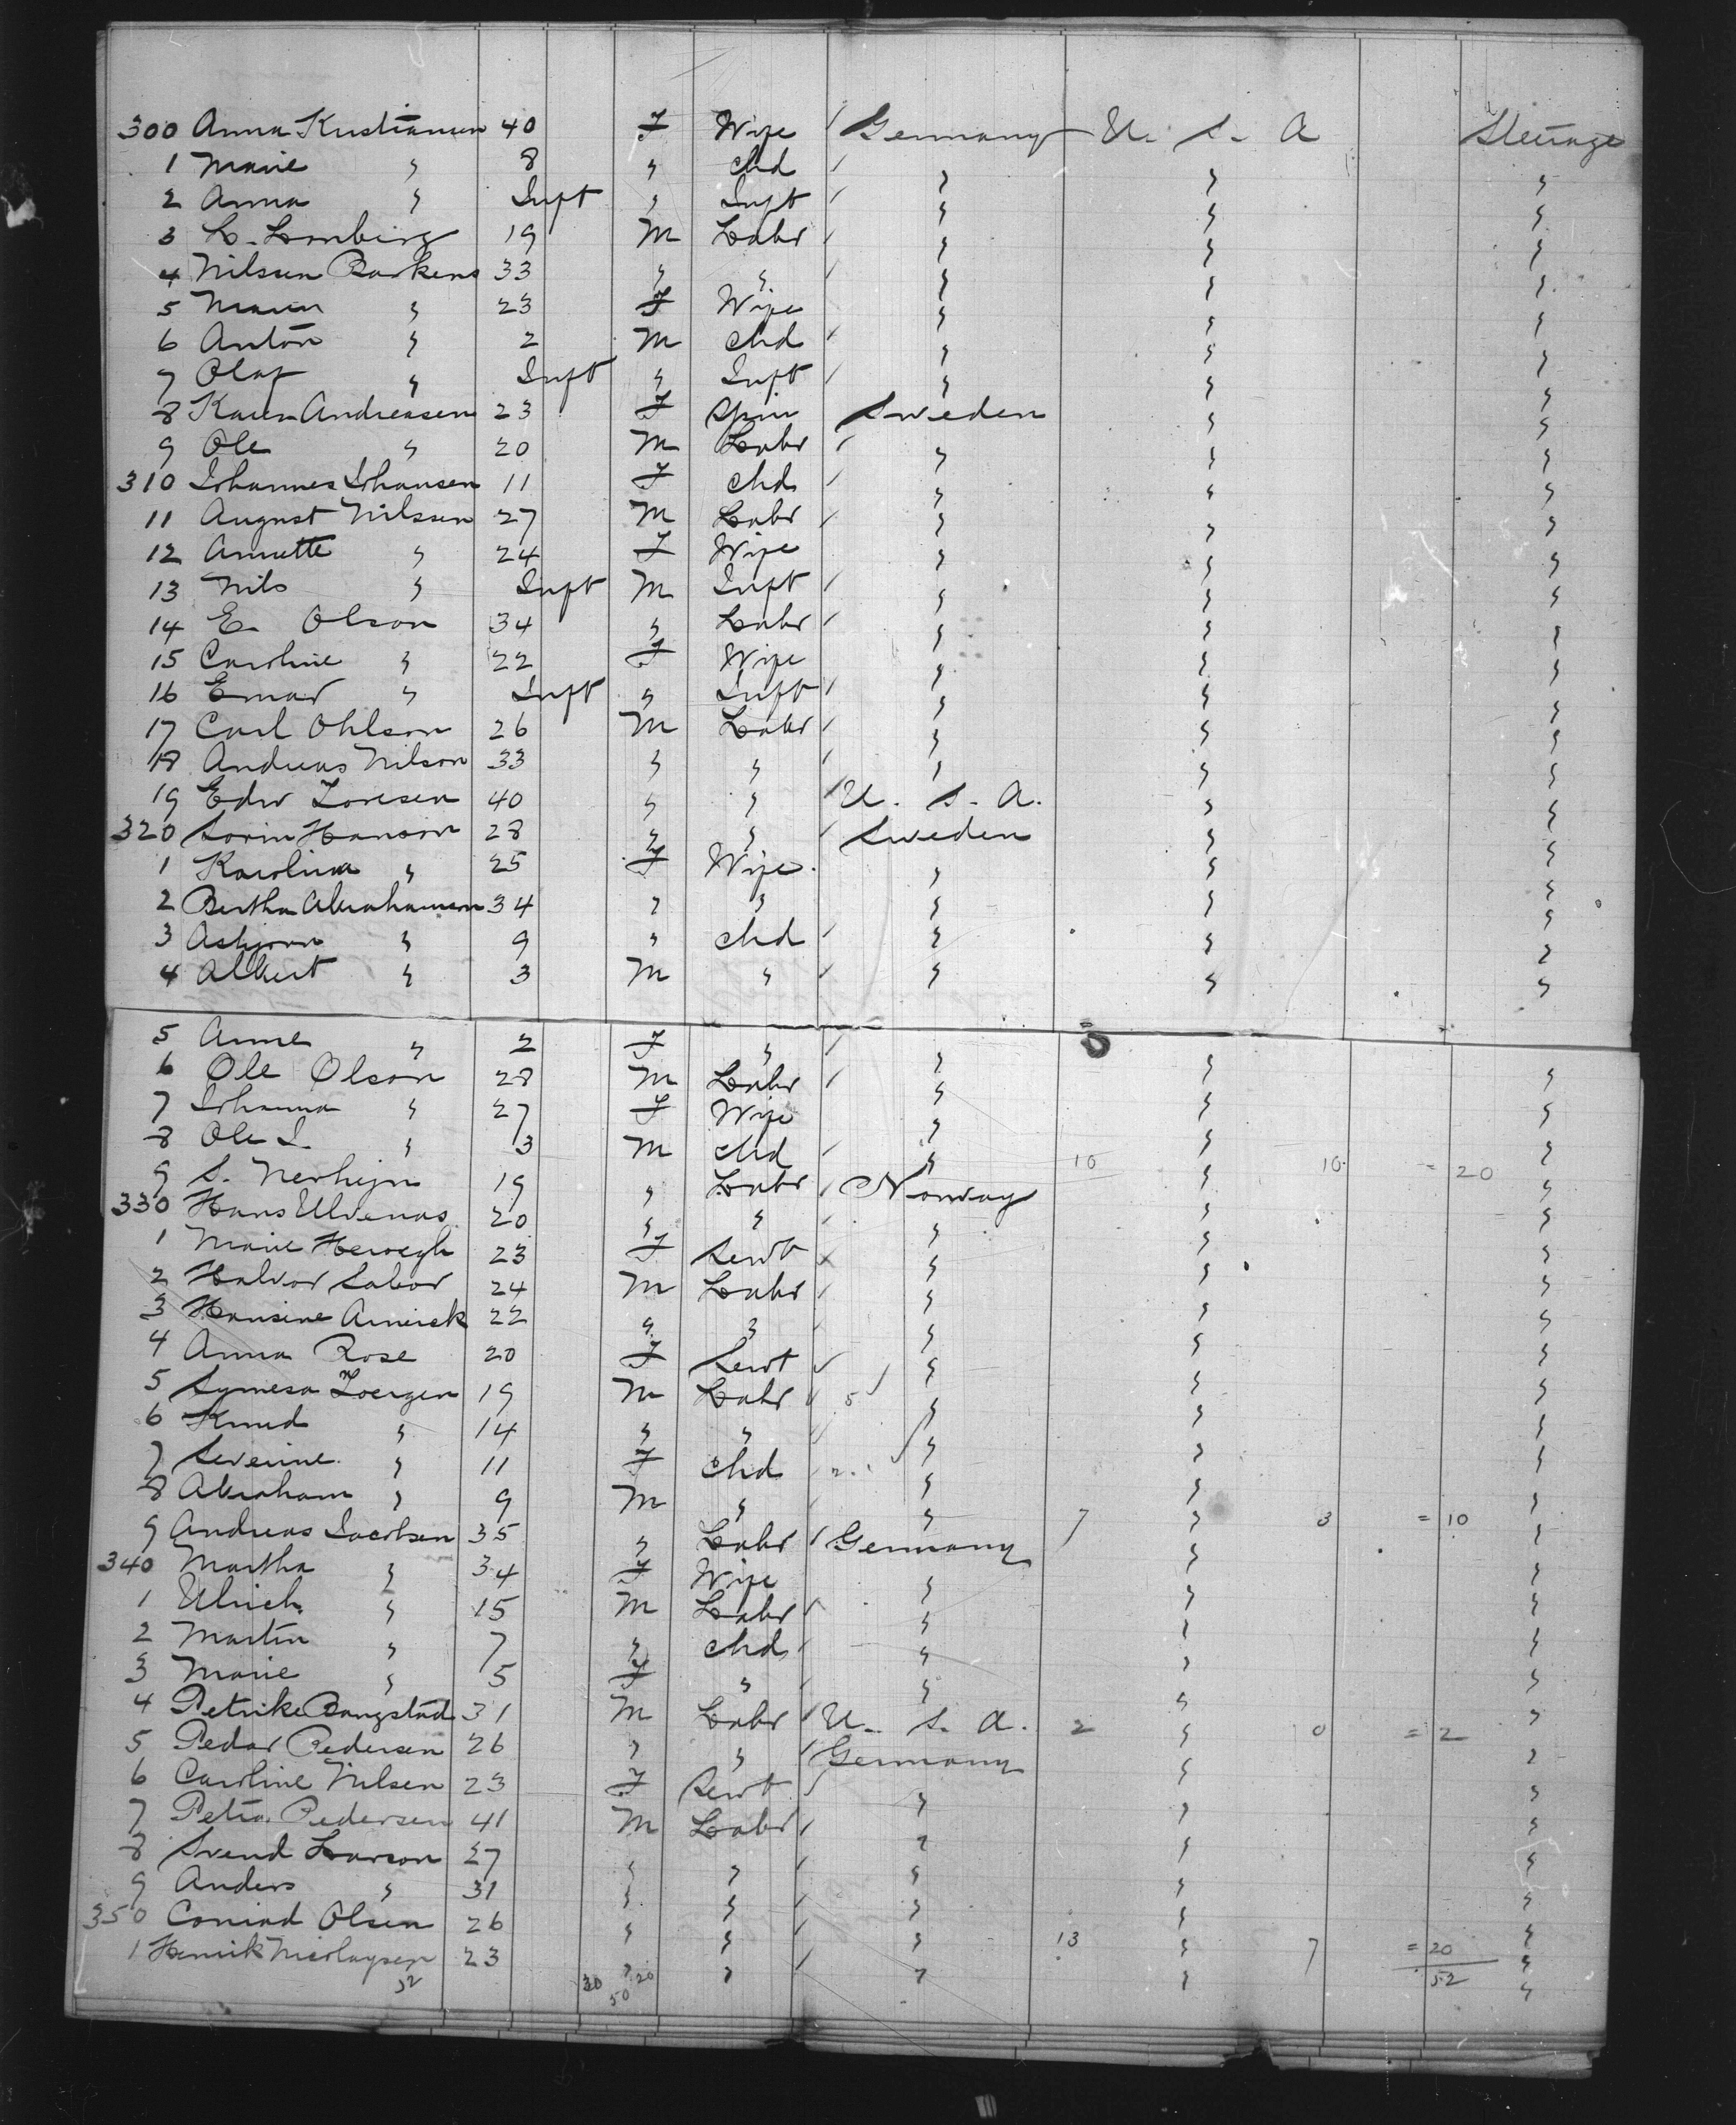 300 Anna Kristiansen 40 F Wife Germany U. S. A Steerage
1 Marie " 8 " Chd " " "
2 Anna " Inft " Inft " " "
3 L. Lomberg 19 M Labr " " "
4 Nilssen Barkens 33 " " " " "
5 Maren " 23 F Wife " " "
6 Anton " 2 M Chd " " "
7 Olaf " Inft " Inft " " "
8 Karen Andreasen 23 F Spin Sweden " "
9 Ole " 20 M Labr " " "
310 Johannes Johansen 11 F Chd " " "
11 August Nilssen 27 M Labr " " "
12 Annette " 24 F Wife " " "
13 Nils " Inft M Inft " " "
14 E. Olson 34 " Labr " " "
15 Caroline " 22 F Wife " " "
16 Emar " Inft " Inft " " "
17 Carl Ohlson 26 M Labr " " "
18 Andreas Nilson 33 " " " " "
19 Edw 40 " " U. S. A. " "
320 Sorin Hanson 28 " " Sweden " "
1 Karolina " 25 F Wife " " "
2 Bertha Abrahamsen 34 " " " " "
3 Asbjorn " 9 " Chd " " "
4 Albert " 3 M " " " "
5 Anne " 2 F " " " "
6 Ole Olson 28 M Labr " " "
7 Johanna " 27 F Wife " " "
8 Ole J. " 3 M Chd " 10 " 10 = 20 "
9 S. 19 " Labr Norway " "
330 Hans Ulvenas 20 " " " " "
1 Marie 23 F Servt " " "
2 Halvor Sabor 24 M Labr " " "
3 Hansine 22 " " " " "
4 Anna Rose 20 F Servt " " "
5 19 M Labr 5 " " "
6 Knud " 14 " " " " "
7 Severine " 11 F Chd 2 " " "
8 Abraham " 9 M " " 7 " 3 = 10 "
9 Andreas Jacobsen 35 " Labr Germany " "
340 Martha " 34 F Wife " " "
1 Ulrich " 15 M Labr " " "
2 Martin " 7 " Chd " " "
3 Marie " 5 F " " " "
4 Petrike Bangstad 31 M Labr U. S. A. 2 " 0 = 2 "
5 Pedar Pedersen 26 " " Germany " "
6 Caroline Nilsen 23 F Servt " " "
7 Petra Pedersen 41 M Labr " " "
8 Svend Larson 27 " " " " "
9 Anders " 31 " " " " "
350 Conrad Olsen 26 " " " 13 " 7 = 20 "
1 Henrik Nicolaysen 23 " " " " 52 "
52 30 20
50